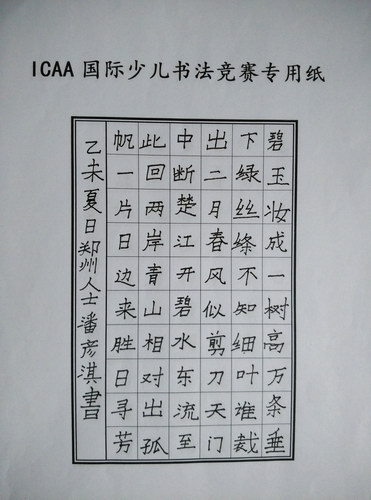 ICAA 国际少儿书法竞赛专用纸
碧玉妆成一树高万条垂
下绿丝绦不知细叶谁裁
出二月春风似剪刀天门
中断楚江开碧水东流至
此回两岸青山相对出孤
帆一片日边来胜日寻芳
乙未夏日郑州人士潘彦淇書